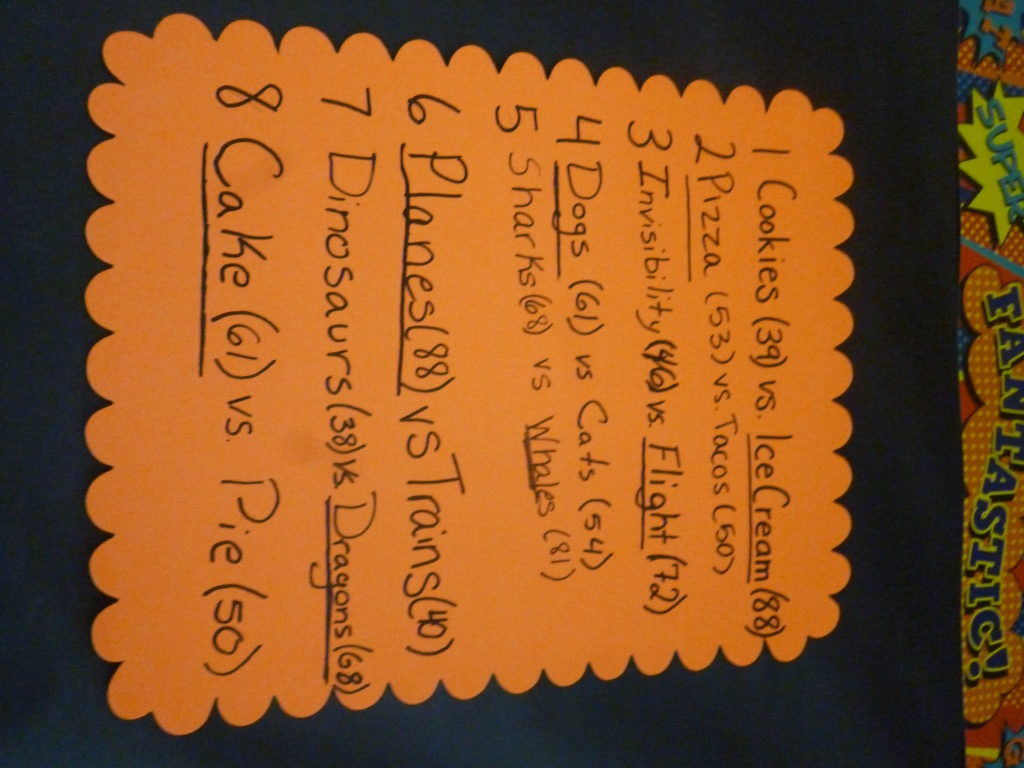 SUPER
FANTASTIC!
1 Cookies (39) vs. Ice Cream (88)
2 Pizza (53) vs. Tacos (50)
3 Invisibility (46) vs. Flight (72)
4 Dogs (61) vs Cats (54)
5 Sharks (68) vs Whales (81)
6 Planes (88) vs Trains (40)
7 Dinosaurs (38) vs. Dragons (68)
8 Cake (61) vs. Pie (50)